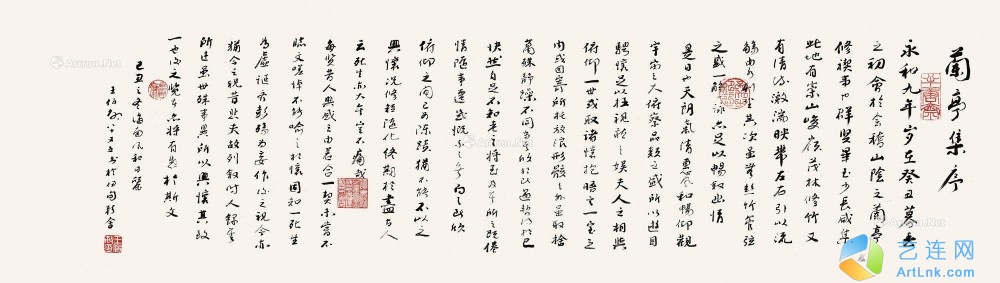 蘭亭集序
永和九年歲在癸丑莫春
之初會於會稽山陰之蘭亭
脩禊事也群賢畢至少長咸集
此地有崇山峻領茂林脩竹又
有清流激湍映帶左右引以流
觴曲水列坐其次雖無絲竹管弦
之盛一觴一詠亦足以暢敘幽情
是日也天朗氣清惠風和暢仰觀
宇宙之大俯察品類之盛所以遊目
騁懷足以極視聽之娛夫人之相與
俯仰一世或取諸懷抱晤言一室之
內或因寄所托放浪形骸之外雖取捨
萬殊靜躁不同當其欣於所遇暫得於己
快然自足不知老之將至及其所之既倦
情隨事遷感慨係之矣向之所欣
俯仰之間已為陳跡猶不能不以之
興懷況脩短隨化終期於盡古人
云死生亦大矣豈不痛哉
每覽昔人興感之由若合一契未嘗不
臨文嗟悼不能喻之於懷固知一死生
為虛誕齊彭殤為妄作後之視今亦
猶今之視昔悲夫故列敘時人錄其
所述雖世殊事異所以興懷其致
一也後之覽者亦將有感於斯文
己丑之冬海南風和日麗
王伯敏書於
艺连网
ArtLnk.com